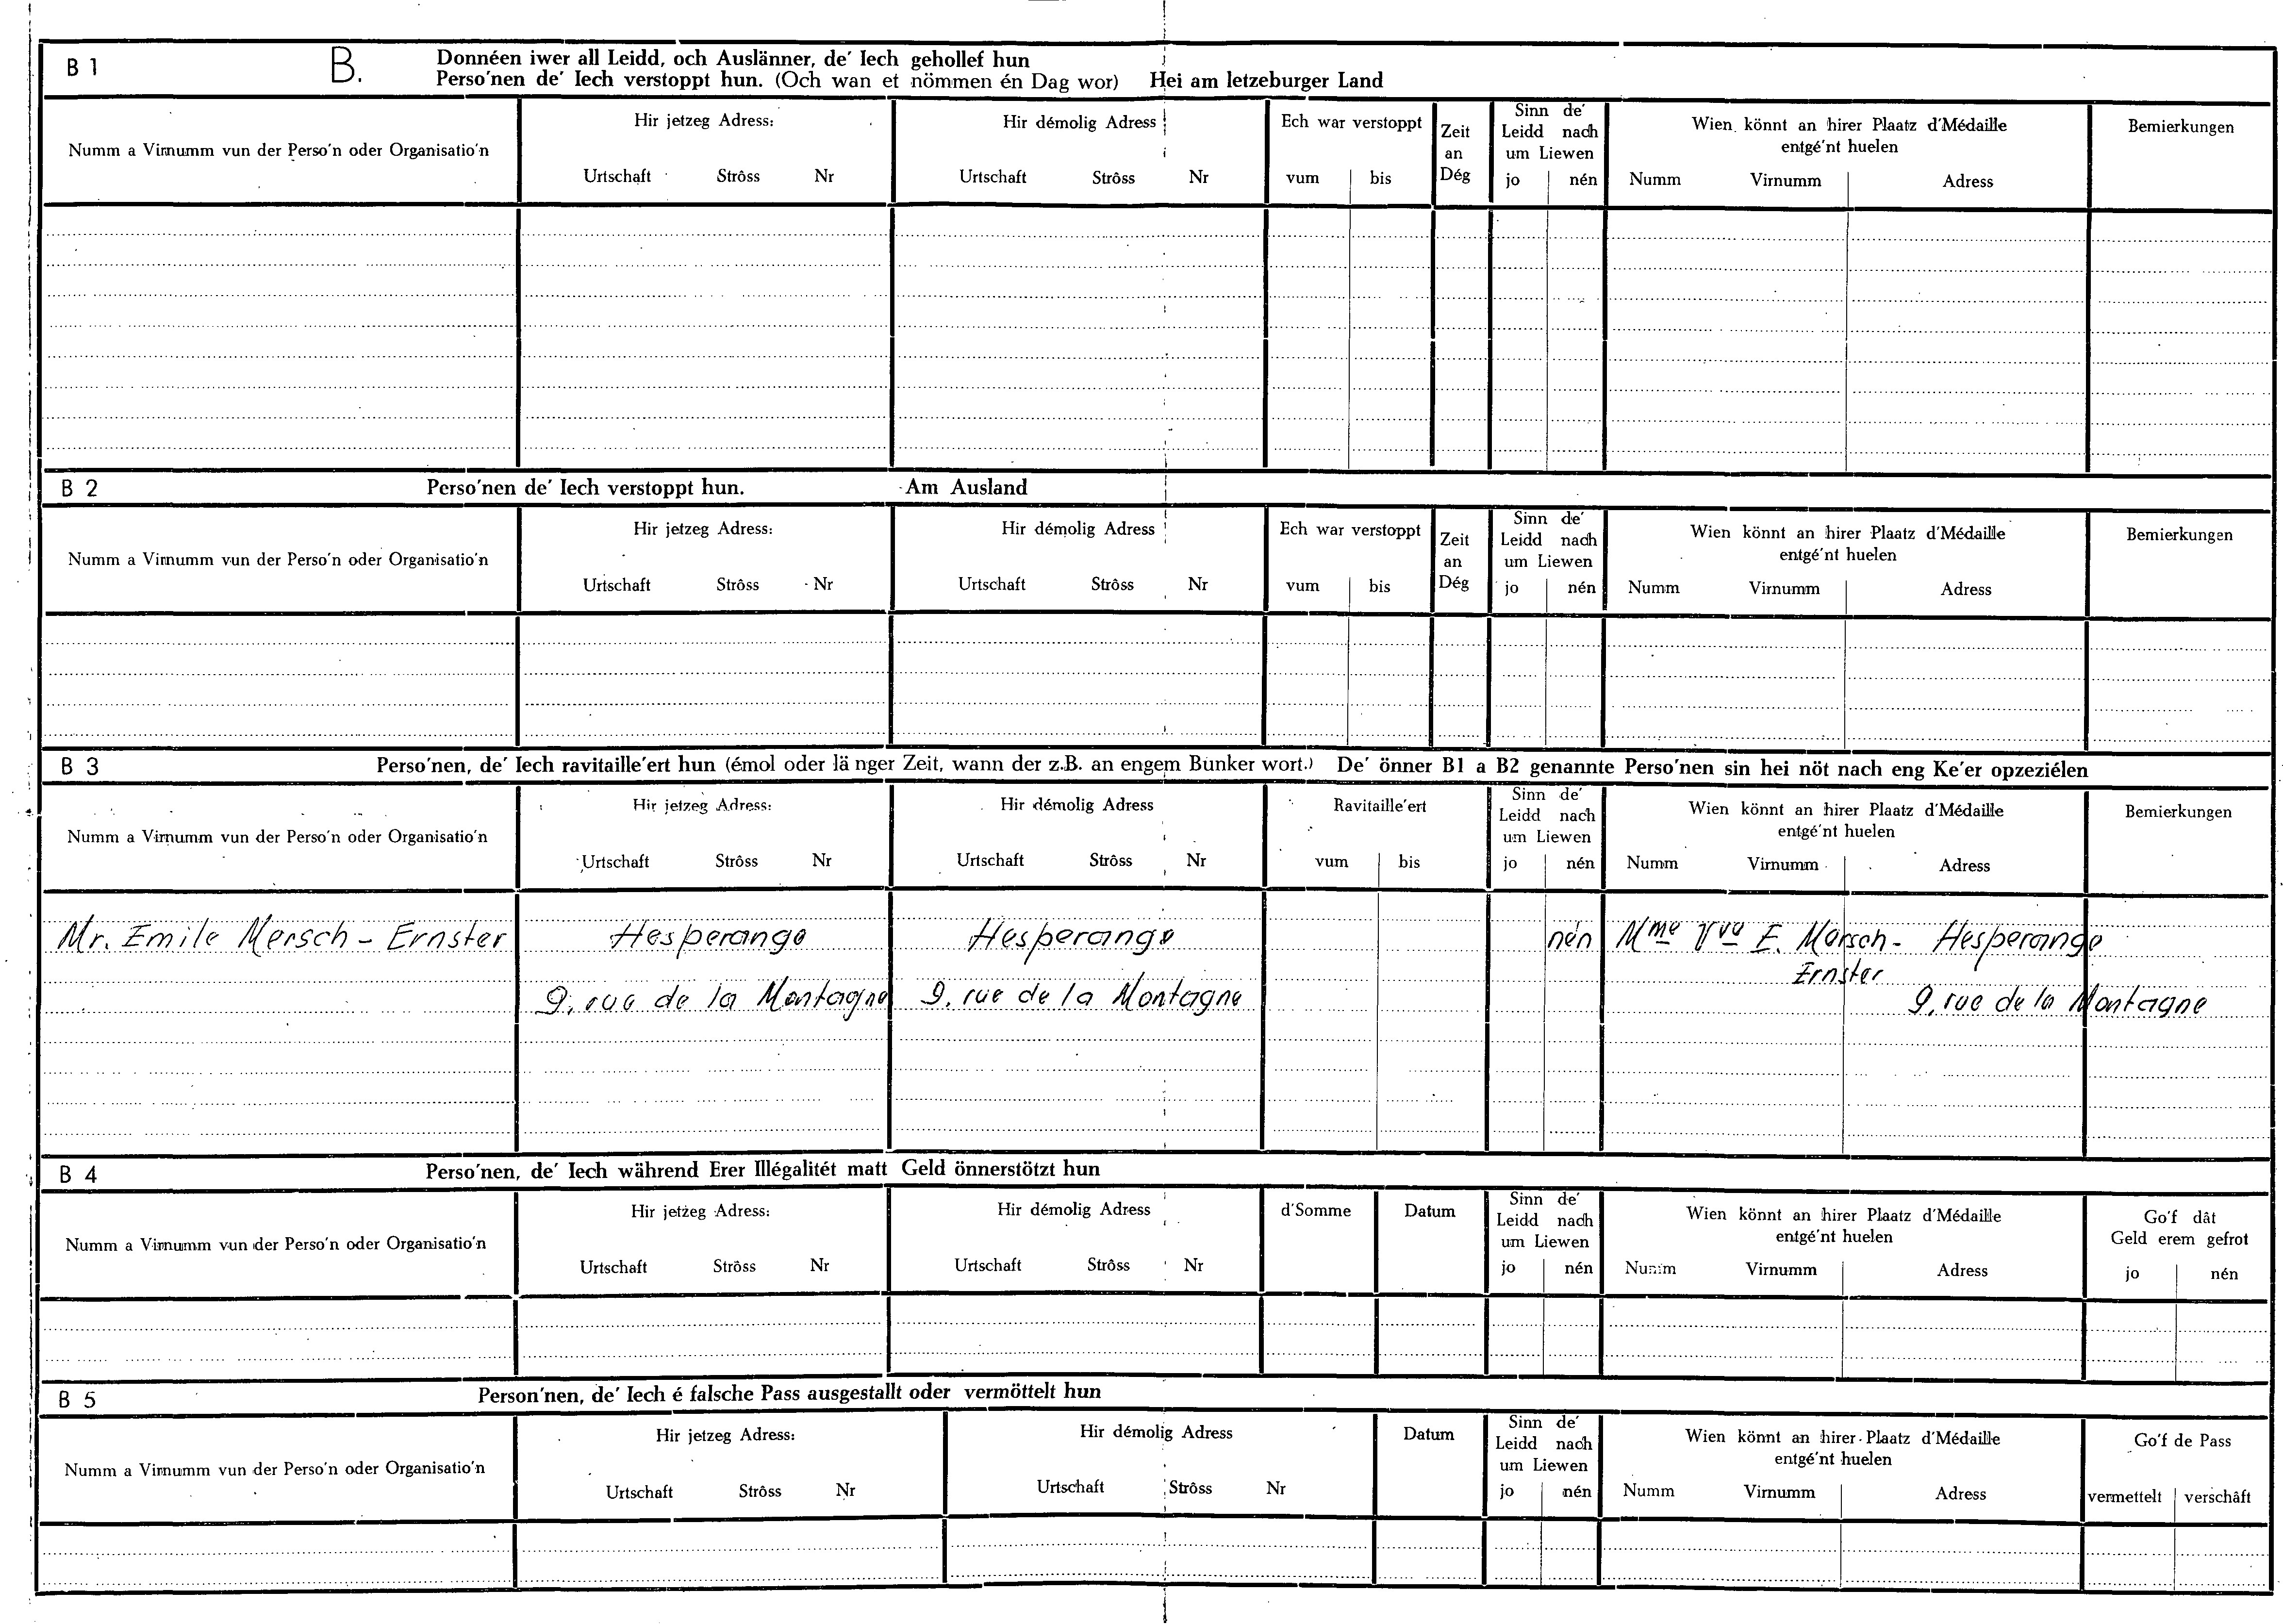 B 1 B. Donnéen iwer all Leidd, och Auslänner, de' Iech gehollef hun
Perso'nen de' Iech verstoppt hun. (Och wan et nömmen én Dag wor) Hei am letzeburger Land
Numm a Virnumm vun der Perso'n oder Organisatio'n
Hir jetzeg Adress:
Urtschaft Strôss Nr
Hir démolig Adress
Urtschaft Strôss Nr
Ech war verstoppt
vum bis
Zeit
an
Dég
Sinn de'
Leidd nach
um Liewen
jo nén
Wien könnt an hirer Plaatz d'Médaille
entgé'nt huelen
Numm Virnumm Adress
Bemierkungen
B 2 Perso'nen de' Iech verstoppt hun. Am Ausland
Numm a Virnumm vun der Perso'n oder Organisatio'n
Hir jetzeg Adress:
Urtschaft Strôss Nr
Hir démolig Adress
Urtschaft Strôss Nr
Ech war verstoppt
vum bis
Zeit
an
Dég
Sinn de'
Leidd nach
um Liewen
jo nén
Wien könnt an hirer Plaatz d'Médaille
entgé'nt huelen
Numm Virnumm Adress
Bemierkungen
B 3 Perso'nen, de' Iech ravitaille'ert hun (émol oder länger Zeit, wann der z.B. an engem Bunker wort.) De' önner B1 a B2 genannte Perso'nen sin hei nöt nach eng Ke'er opzeziélen
Numm a Virnumm vun der Perso'n oder Organisatio'n
Hir jetzeg Adress:
Urtschaft Strôss Nr
Hir démolig Adress
Urtschaft Strôss Nr
Ravitaille'ert
vum bis
Sinn de'
Leidd nach
um Liewen
jo nén
Wien könnt an hirer Plaatz d'Médaille
entgé'nt huelen
Numm Virnumm Adress
Bemierkungen
Mr. Emile Mersch - Ernster Hesperange Hesperange nén Mme Vve E. Mersch - Hesperange
Ernster
9, rue de la Montagne 9, rue de la Montagne 9, rue de la Montagne
B 4 Perso'nen, de' Iech während Erer Illégalitét matt Geld önnerstötzt hun
Numm a Virnumm vun der Perso'n oder Organisatio'n
Hir jetzeg Adress:
Urtschaft Strôss Nr
Hir démolig Adress
Urtschaft Strôss Nr
d'Somme
Datum
Sinn de'
Leidd nach
um Liewen
jo nén
Wien könnt an hirer Plaatz d'Médaille
entgé'nt huelen
Numm Virnumm Adress
Go'f dât
Geld erem gefrot
jo nén
B 5 Person'nen, de' Iech é falsche Pass ausgestallt oder vermöttelt hun
Numm a Virnumm vun der Perso'n oder Organisatio'n
Hir jetzeg Adress:
Urtschaft Strôss Nr
Hir démolig Adress
Urtschaft Strôss Nr
Datum
Sinn de'
Leidd nach
um Liewen
jo nén
Wien könnt an hirer Plaatz d'Médaille
entgé'nt huelen
Numm Virnumm Adress
Go'f de Pass
vermettelt verschâft